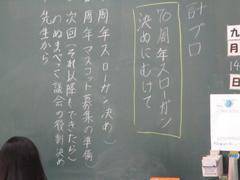 計ブロ
70周年スローガン
決めにむけて
周年スローガン決め)
周年マスコット募集の準備)
次回(それ以降もできたら)
めまべこ議会の役割決め
先生から
九
月
14
日